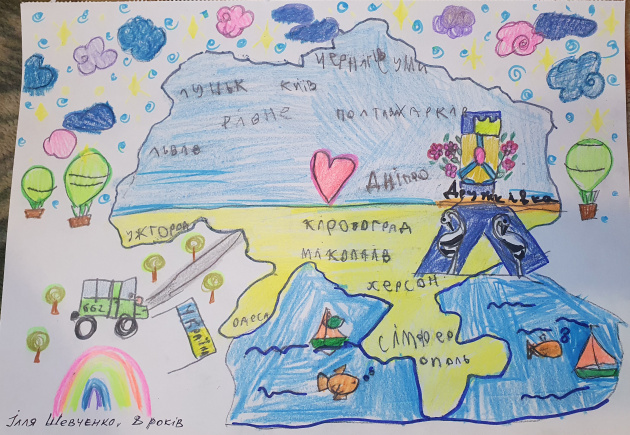 ЧЕРНІГІВ СУМИ
ЛУЦЬК КИЇВ
РІВНЕ ПОЛТАВА ХАРКІВ
ЛЬВІВ
ДНІПРО
Дружківка
УЖГОРОД
КІРОВОГРАД
МИКОЛАЇВ
ХЕРСОН
662
УКРАЇНА
ОДЕСА
СІМФЕР
ОПОЛЬ
Ілля Шевченко, 8 років